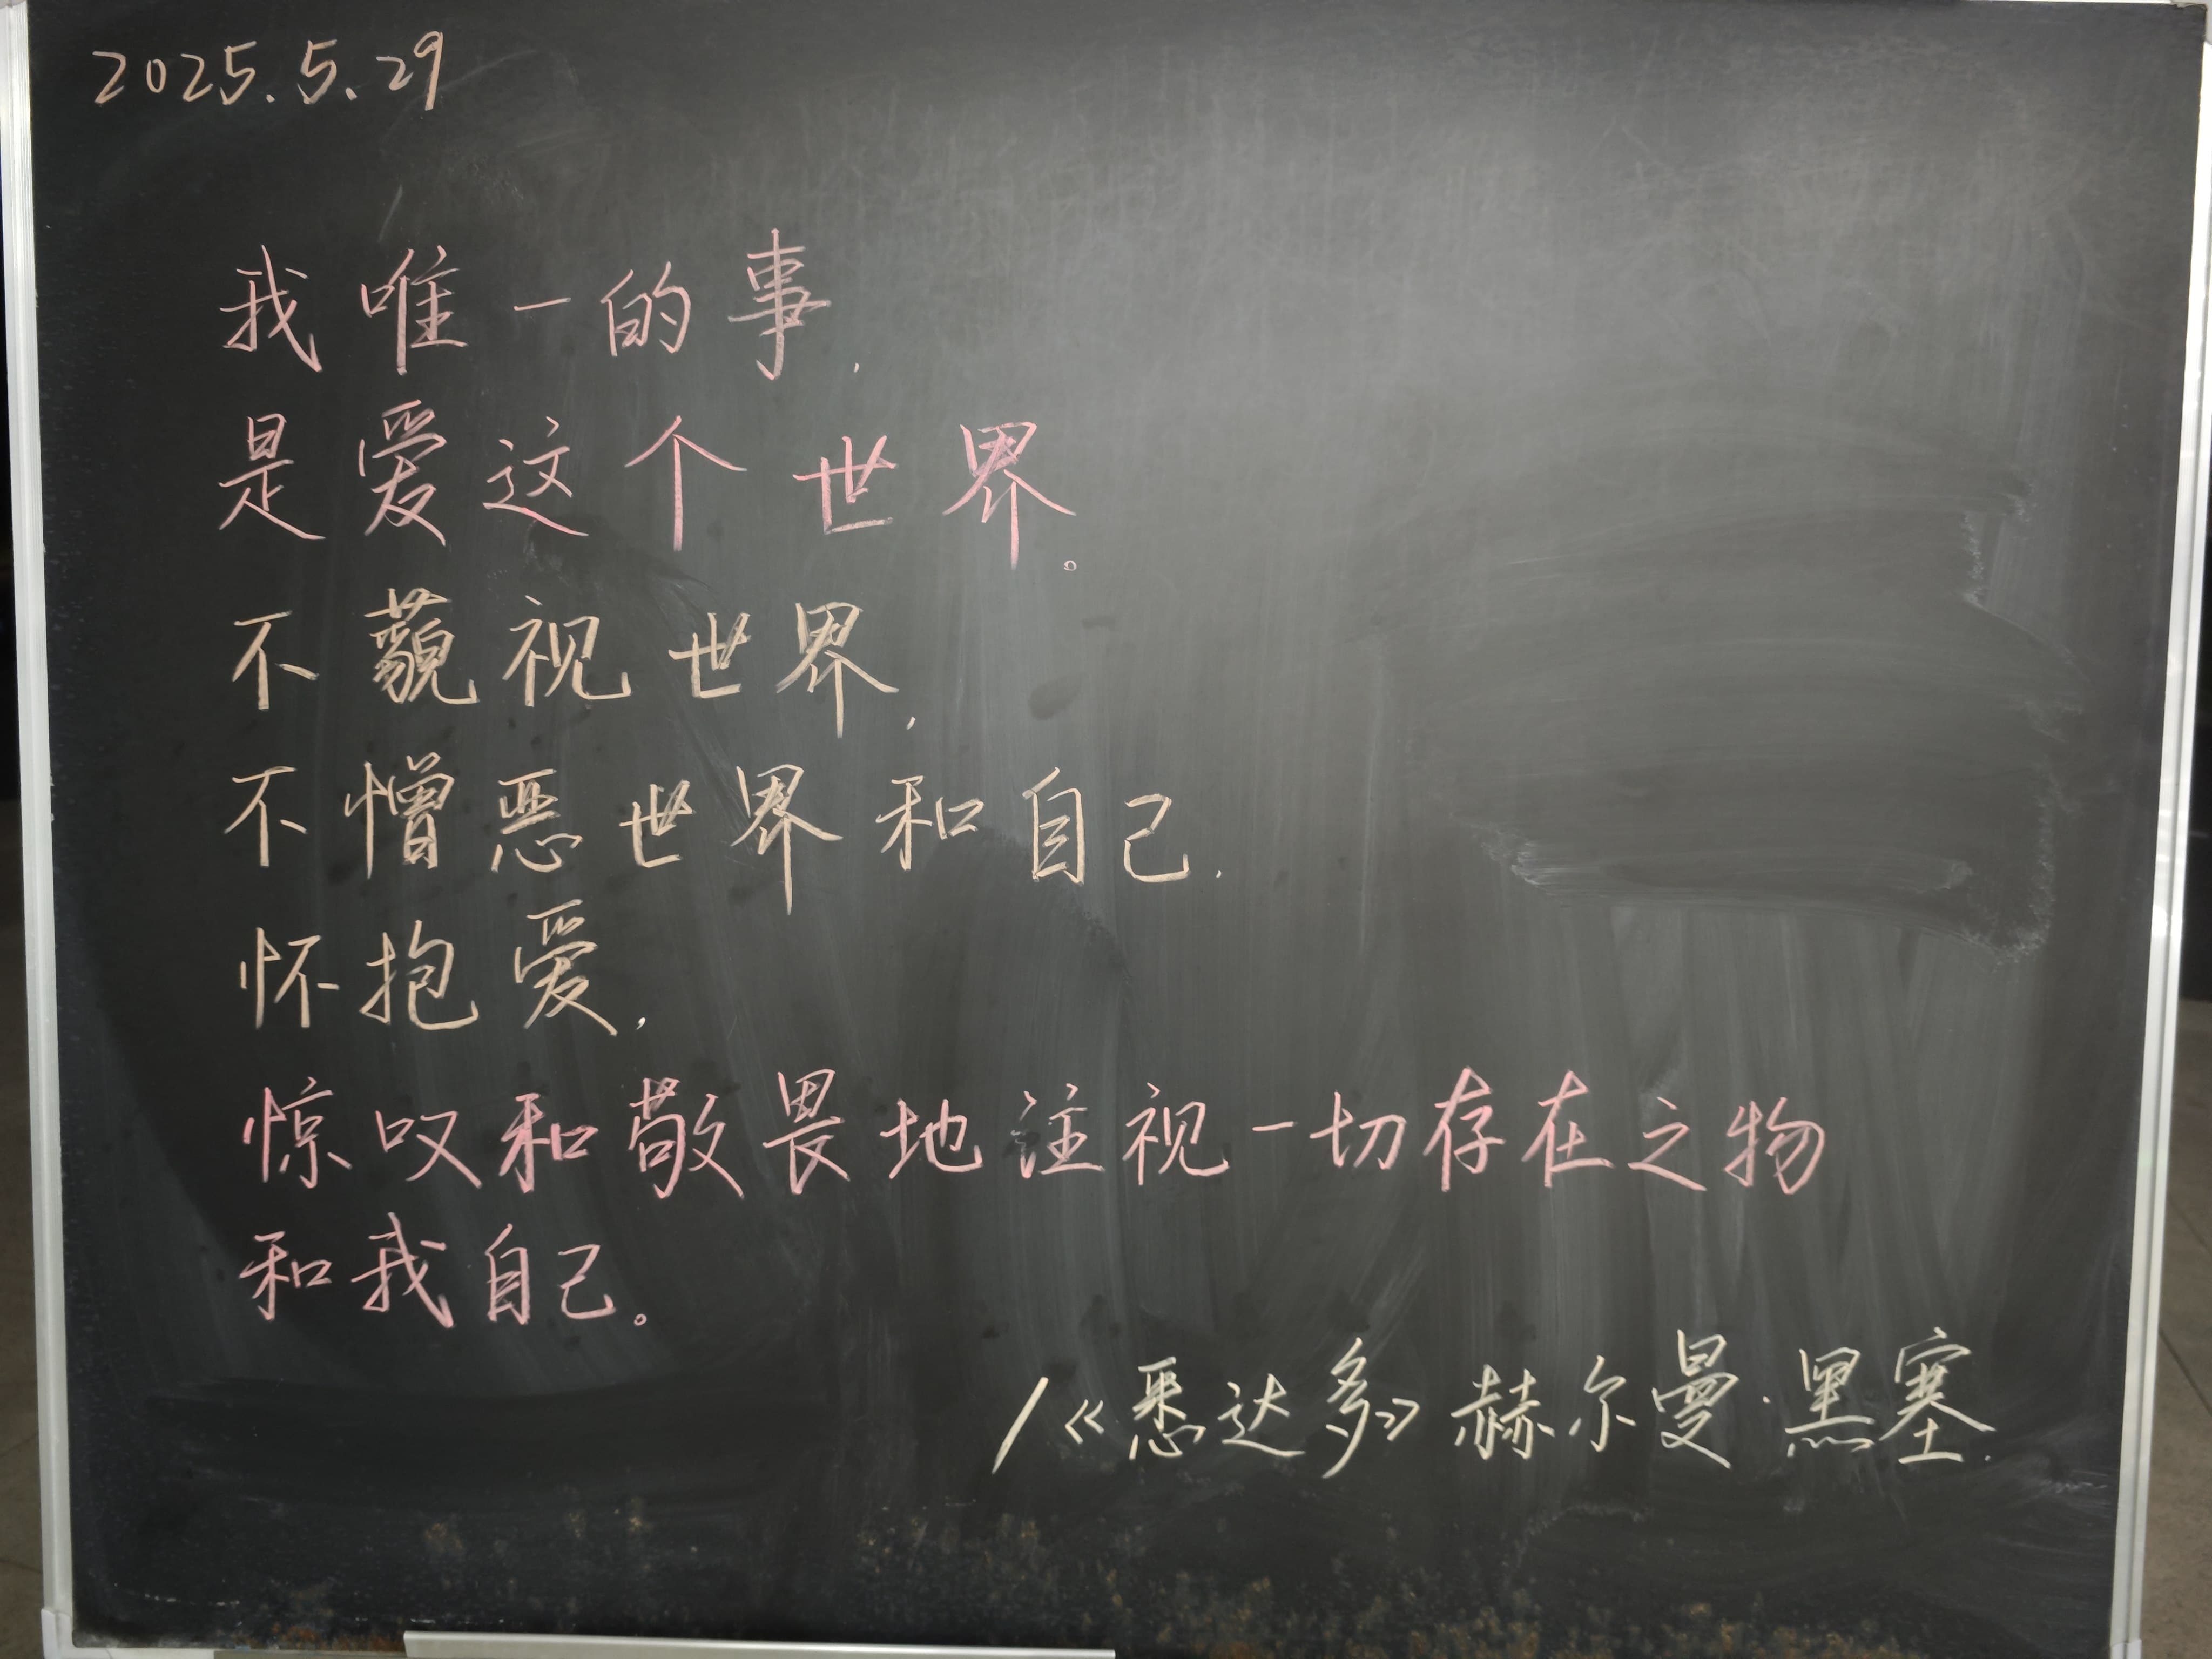 2025.5.29
我唯一的事,
是爱这个世界。
不藐视世界,
不憎恶世界和自己.
怀抱爱,
惊叹和敬畏地注视一切存在之物
和我自己。
/《悉达多》赫尔曼·黑塞.